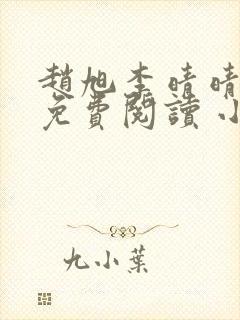 趙旭李晴晴
免費閱讀小
九小葉